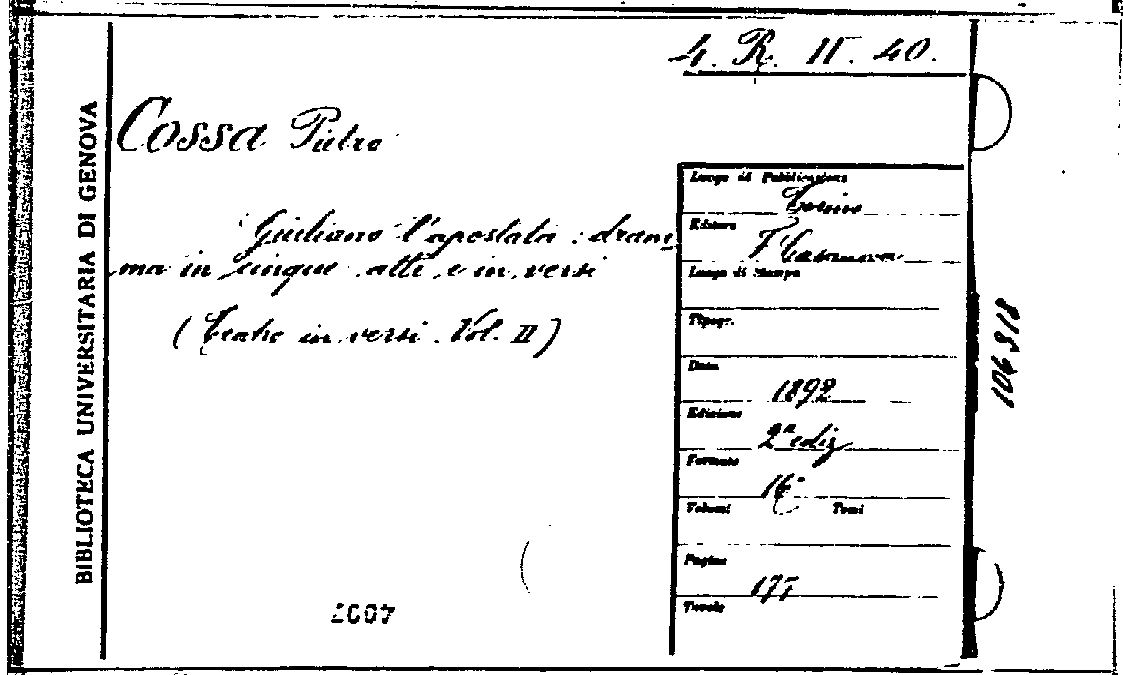 4. R. II. 40.
BIBLIOTECA UNIVERSITARIA DI GENOVA
Cossa Pietro
Giuliano l'apostata : dram-
ma in cinque atti e in versi
(Teatro in versi. Vol. II)
Luogo di Pubblicazione
Torino
Editore
F Casanova
Luogo di Stampa
Tipogr.
Data
1892
Edizione
2ª ediz
Formato
16°
Volumi Tomi
Pagine
177
Tavole
106318